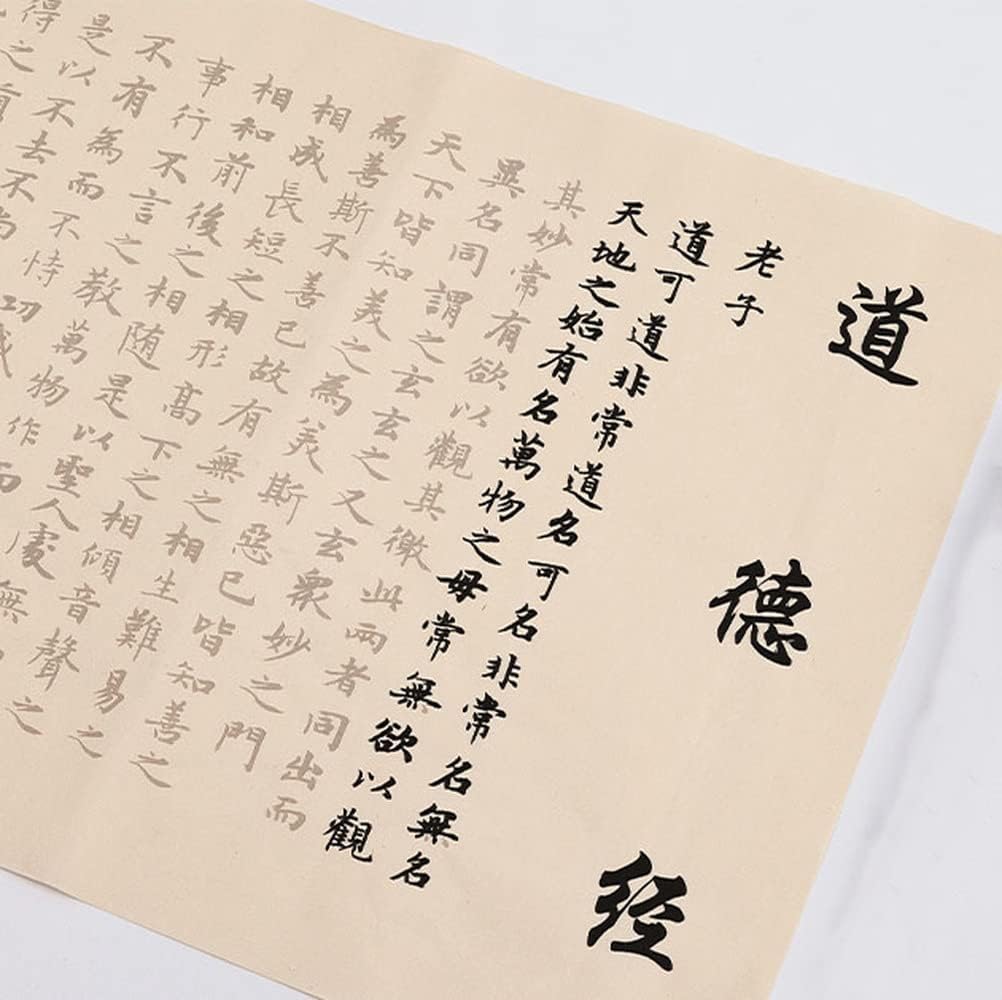 道德经
老子
道可道非常道名可名非常名無名
天地之始有名萬物之母常無欲以觀
其妙常有欲以觀其徼此兩者同出而
異名同謂之玄玄之又玄衆妙之門
天下皆知美之為美斯惡已皆知善之
為善斯不善已故有無之相生難易之
相成長短之相形高下之相傾音聲之
相和前後之相随是以聖人處無
事行不言之教萬物作而
不有為而不恃功成
是以不去不尚
得之